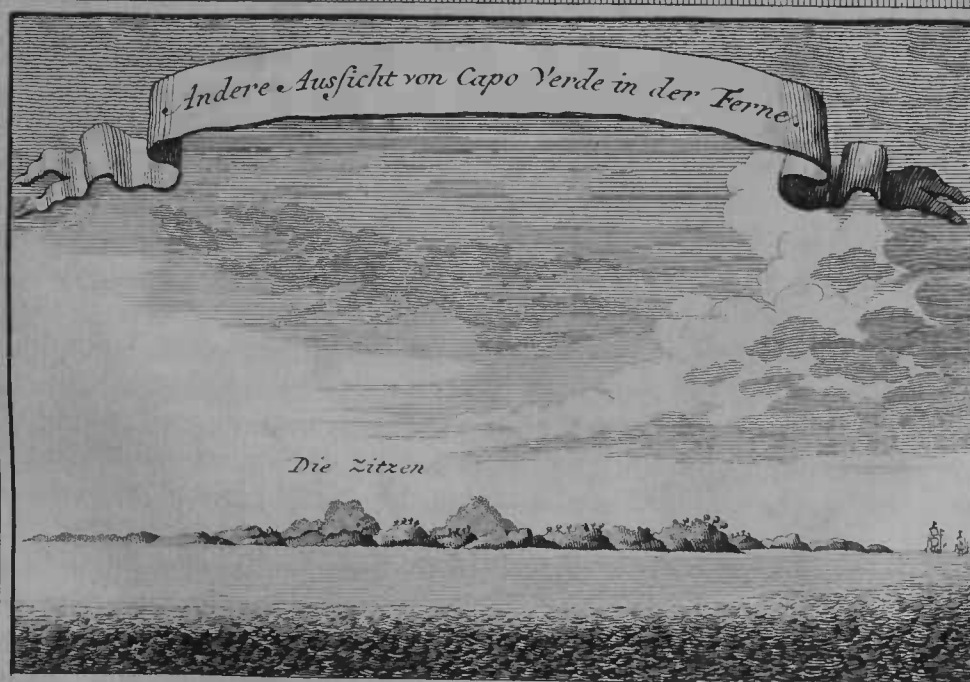 Andere Aussicht von Capo Verde in der Ferne.
Die Zitzen